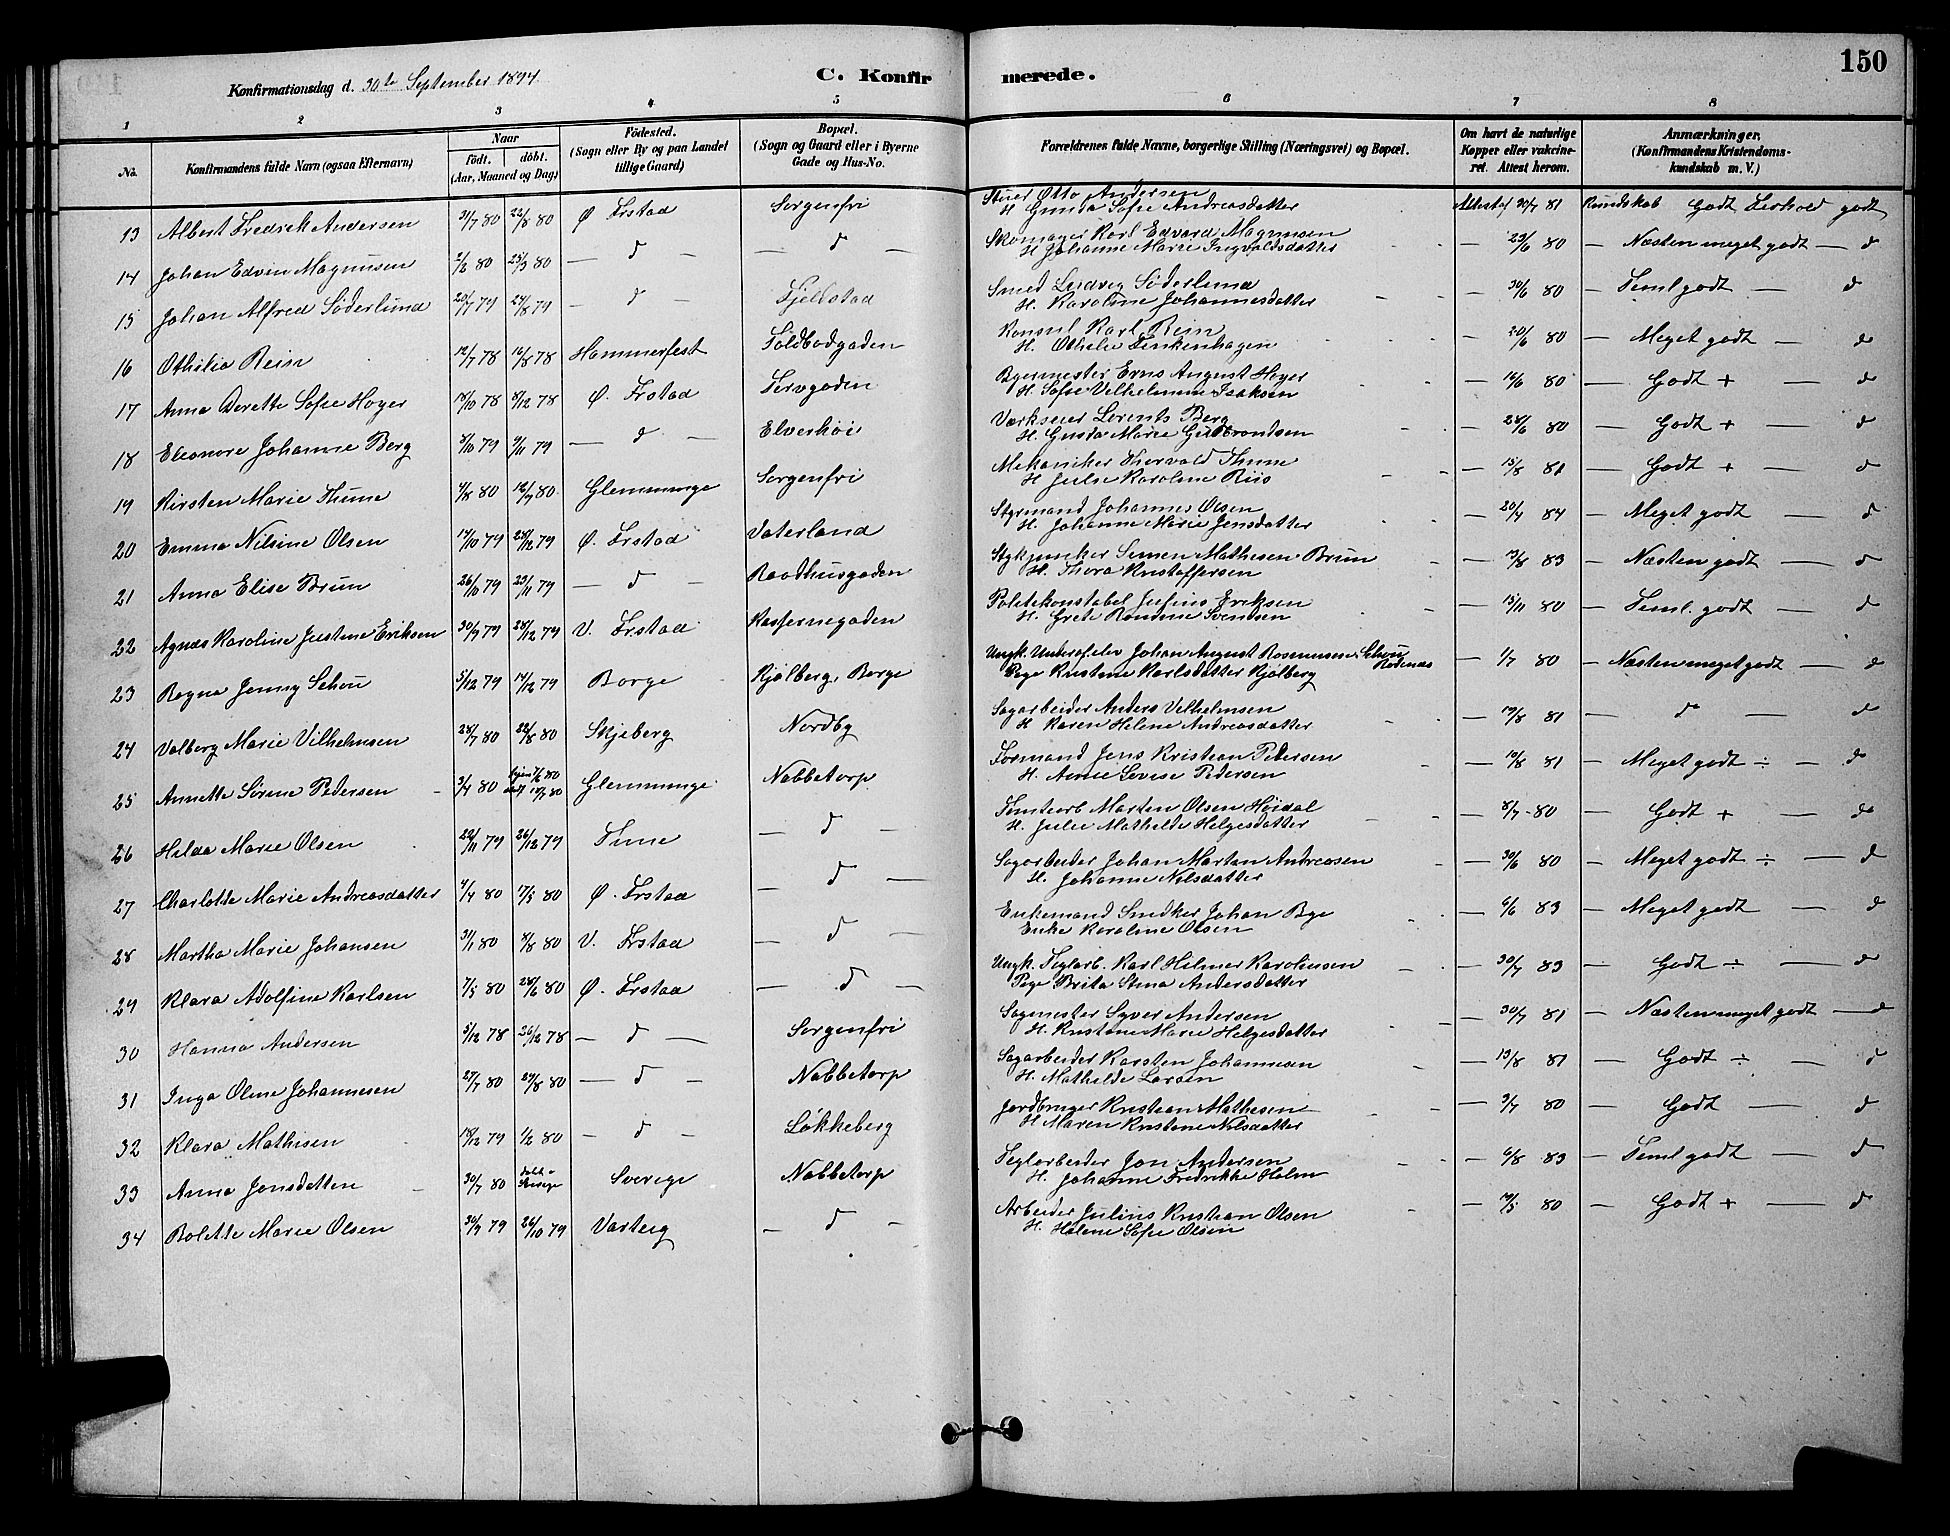 150
Konfirmationsdag d. 30te September 1894.
C. Konfirmerede.
1 2 3 4 5 6 7 8
No. Konfirmandens fulde Navn (ogsaa Efternavn) Naar födt. döbt. (Aar, Maaned og Dag) Födested. (Sogn eller By og paa Landet tillige Gaard) Bopæl. (Sogn og Gaard eller i Byerne Gade og Hus-No. Forældrenes fulde Navne, borgerlige Stilling (Næringsvei) og Bopæl. Om havt de naturlige Kopper eller vakcineret. Attest herom. Anmærkninger. (Konfirmandens Kristendomskundskab m. V.)
13 Albert Fredrik Andersen 31/7 80 22/8 80 Ø. Frstad Sorgenfri Otto Andersen Attest af 30/7 81 Kundskab Godt Forhold godt
H. Gunda Sofie Andreasdatter
14 Johan Edvin Magnusen 2/2 80 25/3 80 — d — — d — Skomager Karl Edvard Magnusen — 23/6 80 — Næsten meget godt — d
H. Johanne Marie Ingvaldsdatter
15 Johan Alfred Söderlund 20/7 79 24/8 79 — d — Fjeldstad Smed Ludvig Söderlund — 30/6 80 — Teml godt — d
H. Karoline Johannesdatter
16 Othilia Rein 12/7 78 16/8 78 Hammerfest Toldbodgaden Konsul Karl Rein — 20/6 80 — Meget godt — d
H. Othelie Finkenhagen
17 Anna Dorette Sofie Hoyer 18/10 78 8/12 78 Ø. Frstad Torvgaden August Hoyer — 16/6 80 — Godt + — d
H. Sofie Vilhelmine Isaksen
18 Eleonore Johanne Berg 8/10 79 9/11 79 — d — Elverhöi Værkseier Lorents Berg — 28/6 80 — Godt + — d
H. Gusta Marie Gulbrandsen
19 Kirsten Marie Thune 4/8 80 12/9 80 Glemminge Sorgenfri Mekaniker Thorvald Thune — 15/8 81 — Godt + — d
H. Julie Karoline Riis
20 Emma Nilsine Olsen 14/10 79 28/12 79 Ø. Frstad Vaterland Styrmand Johannes Olsen — 20/7 84 — Meget godt — d
H. Johanne Marie Jensdatter
21 Anna Elise Brun 26/10 79 23/11 79 — d — Raadhusgaden Simen Mathisen Brun — 13/8 83 — Næsten godt — d
H. Thora Kristoffersen
22 Agnes Karoline Justine Eriksen 30/9 79 28/12 79 V. Frstad Kasernegaden Politikonstabel Julius Eriksen — 15/11 80 — Teml. godt — d
H. Grete Rondine Svendsen
23 Ragna Jenny Schou 5/12 79 14/12 79 Borge Kjölberg, Borge Ungk. Johan August Rasmussen Schou — 1/7 80 — Næsten meget godt — d
Pige Kristine Karlsdatter Kjölberg
24 Valborg Marie Vilhelmsen 28/7 80 22/8 80 Skjeberg Nordby Sagarbeider Anders Vilhelmsen — 19/8 81 — d — d
H. Karen Helene Andreasdatter
25 Annette Sörine Pedersen 3/4 80 Glemminge Nabbetorp Formand Jens Kristian Pedersen — 12/8 81 — Meget godt ÷ — d
H. Anne Lovise Pedersen
26 Hilda Marie Olsen 22/11 79 26/12 79 Tune — d — Tomtearb Marten Olsen Höidal — 8/7 80 — Godt + — d
H. Julie Mathilde Helgesdatter
27 Charlotte Marie Andreasdatter 4/4 80 17/5 80 Ø. Frstad — d — Sagarbeider Johan Martan Andreasen — 30/6 80 — Meget godt ÷ — d
H. Johanne Nilsdatter
28 Martha Marie Johansen 31/1 80 8/8 80 V. Frstad — d — Enkemand Snedker Johan Bye — 6/6 83 — Meget godt — d
Enke Karoline Olsen
29 Klara Adolfine Karlsen 7/5 80 28/6 80 Ø. Frstad — d — Ungk. Teglarb. Karl Hilmer Karolusen — 30/7 83 — Godt ÷ — d
Pige Brita Stina Andersdatter
30 Hanna Andersen 5/12 78 26/12 78 — d — Sorgenfri Sagmester Syver Andersen — 30/7 81 — Næsten meget godt — d
H. Kristine Marie Helgesdatter
31 Inga Oline Johannesen 27/7 80 29/8 80 — d — Nabbetorp Sagarbeider Karsten Johannesen — 13/8 81 — Godt ÷ — d
H. Mathilde Larsen
32 Klara Mathisen 18/12 79 1/2 80 — d — Løkkeberg Jordbruger Kristian Mathisen — 3/7 80 — Godt — d
H. Maren Kristine Nilsdatter
33 Anna Jonsdatten 30/7 80 Sverige Nabbetorp Teglarbeider Jon Andersen — 6/8 83 — Teml godt — d
H. Johanne Fredrikke Holm
34 Bolette Marie Olsen 30/9 79 26/10 79 Varteig — d — Arbeider Julius Kristian Olsen — 19/5 80 — Godt + — d
H. Helene Sofie Olsen